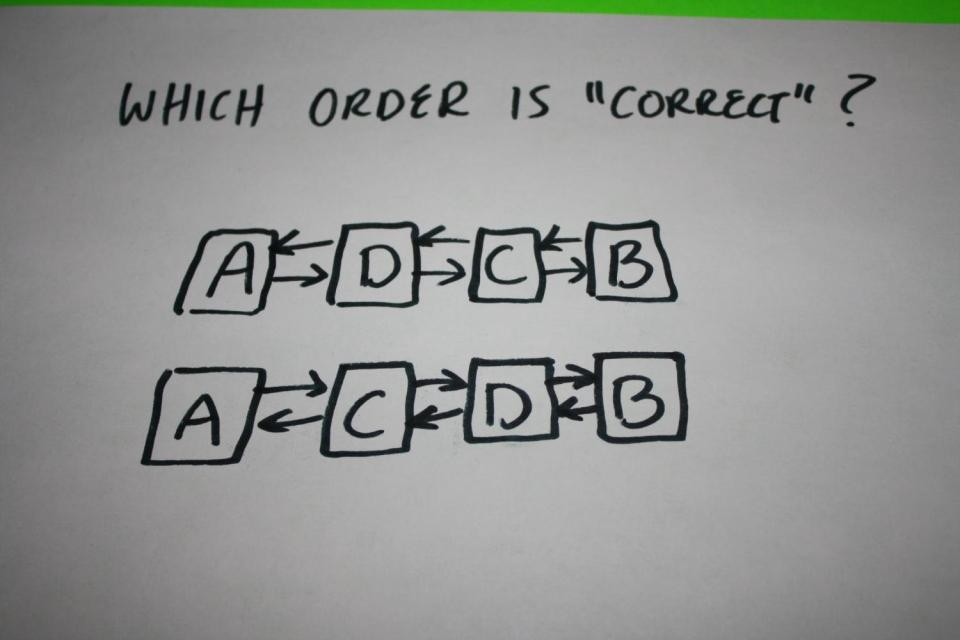 WHICH ORDER IS "CORRECT" ?
A D C B
A C D B